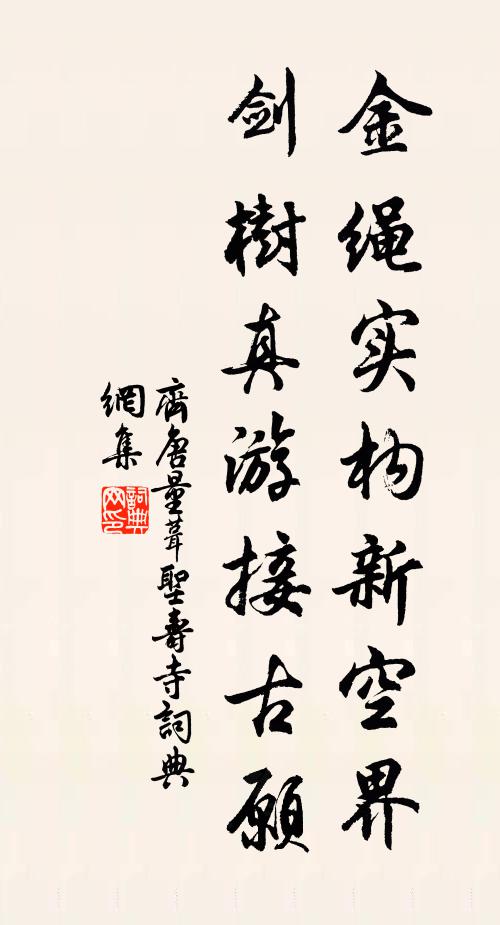 金绳实构新空界
剑樹真游接古愿
齊唐量葺聖壽寺詞典
網集
詞典
网印